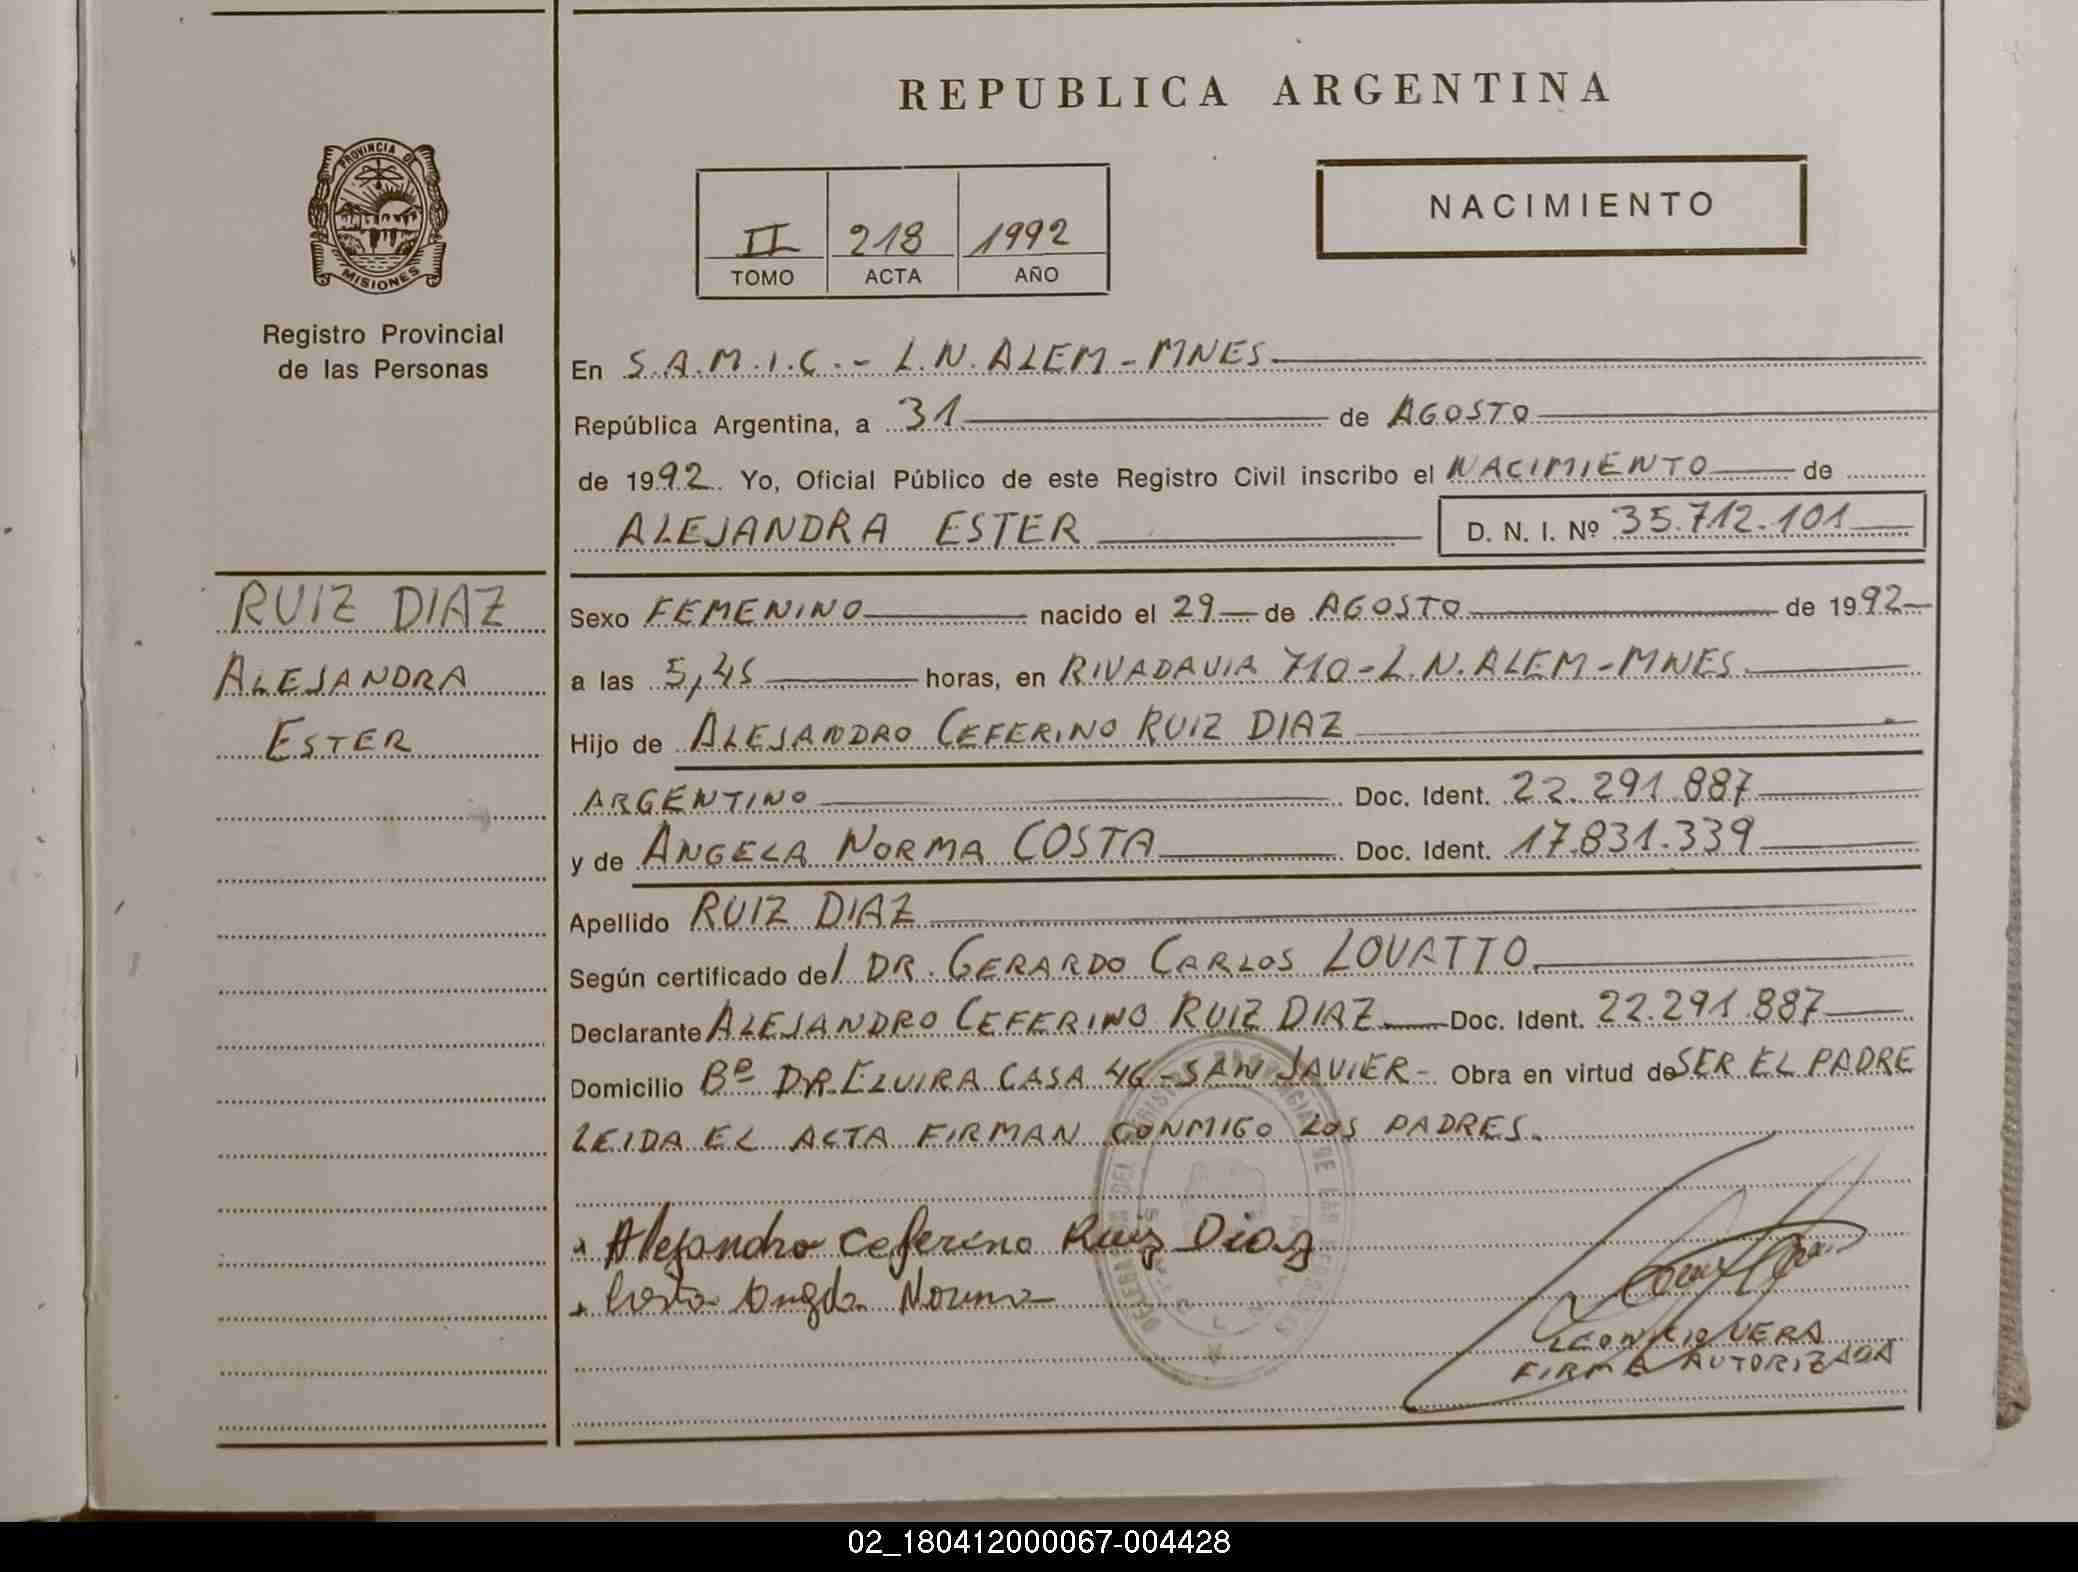 REPUBLICA ARGENTINA
PROVINCIA DE
MISIONES
Registro Provincial
de las Personas
NACIMIENTO
II 218 1992
TOMO ACTA AÑO
En S.A.M.I.C.- L.N.ALEM-MNES
República Argentina, a 31 de AGOSTO
de 1992. Yo, Oficial Público de este Registro Civil inscribo el NACIMIENTO de
ALEJANDRA ESTER D. N. I. Nº 35.712.101
RUIZ DIAZ
ALEJANDRA
ESTER
Sexo FEMENINO nacido el 29 de AGOSTO de 1992
a las 5,45 horas, en RIVADAVIA 710-L.N.ALEM-MNES.
Hijo de ALEJANDRO CEFERINO RUIZ DIAZ
ARGENTINO Doc. Ident. 22.291.887
y de ANGELA NORMA COSTA Doc. Ident. 17.831.339
Apellido RUIZ DIAZ
Según certificado del DR. GERARDO CARLOS LOVATTO
Declarante ALEJANDRO CEFERINO RUIZ DIAZ Doc. Ident. 22.291.887
Domicilio Bº DR.ELVIRA CASA 46-SAN JAVIER- Obra en virtud de SER EL PADRE
LEIDA EL ACTA FIRMAN CONMIGO LOS PADRES.
Alejandro Ceferino Ruiz Diaz
Costa Angela Norma
LEONCIO VERA
FIRMA AUTORIZADA
02_180412000067-004428